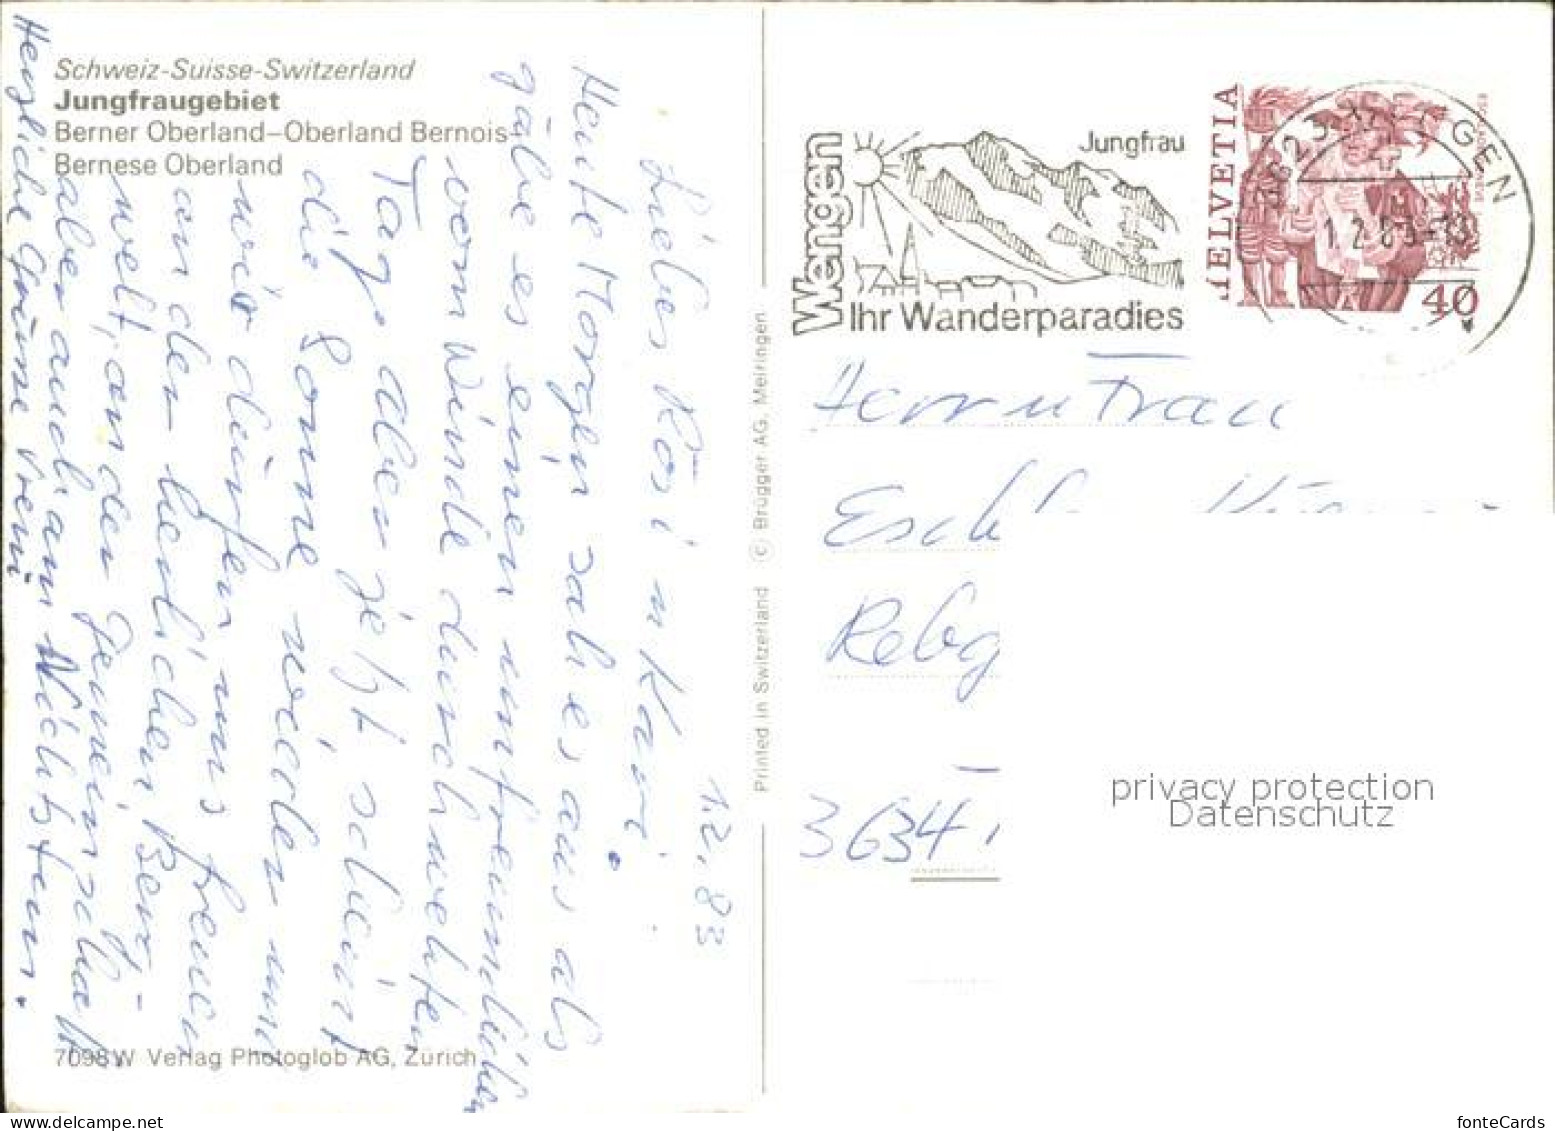 Schweiz-Suisse-Switzerland
Jungfraugebiet
Berner Oberland–Oberland Bernois
Bernese Oberland
1.2.83
Liebes Rösi u Kari.
Heute Morgen sah es aus als
gäbe es einen unfreundlichen
vom Winde durchwehten
Tag, aber jetzt scheint
die Sonne wieder und
wir dürfen uns freuen
an der herrlichen Berg-
welt, an der Gemeinschaft
aber auch am Nichtstun.
Herzliche Grüsse Vreni
7098W Verlag Photoglob AG, Zürich
Printed in Switzerland © Brügger AG, Meiringen
Wengen
Jungfrau
Ihr Wanderparadies
3823 WENGEN
1.2.83-13
HELVETIA
40
Herrn u Frau
Rebg
3634
privacy protection
Datenschutz
www.delcampe.net
fonteCards